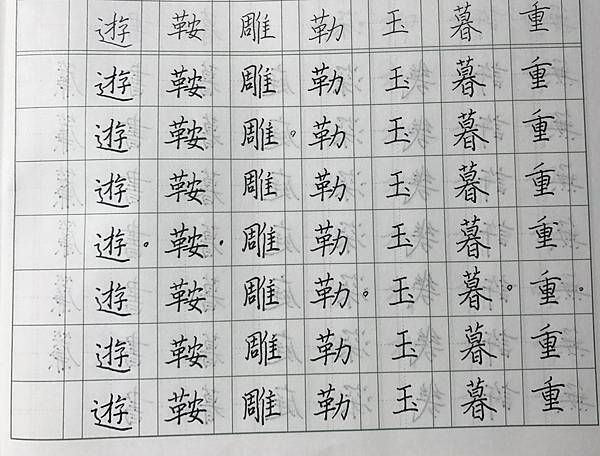 重重重重重重重重
暮暮暮暮暮暮暮暮
玉玉玉玉玉玉玉玉
勒勒勒勒勒勒勒勒
雕雕雕雕雕雕雕雕
鞍鞍鞍鞍鞍鞍鞍鞍
遊遊遊遊遊遊遊遊